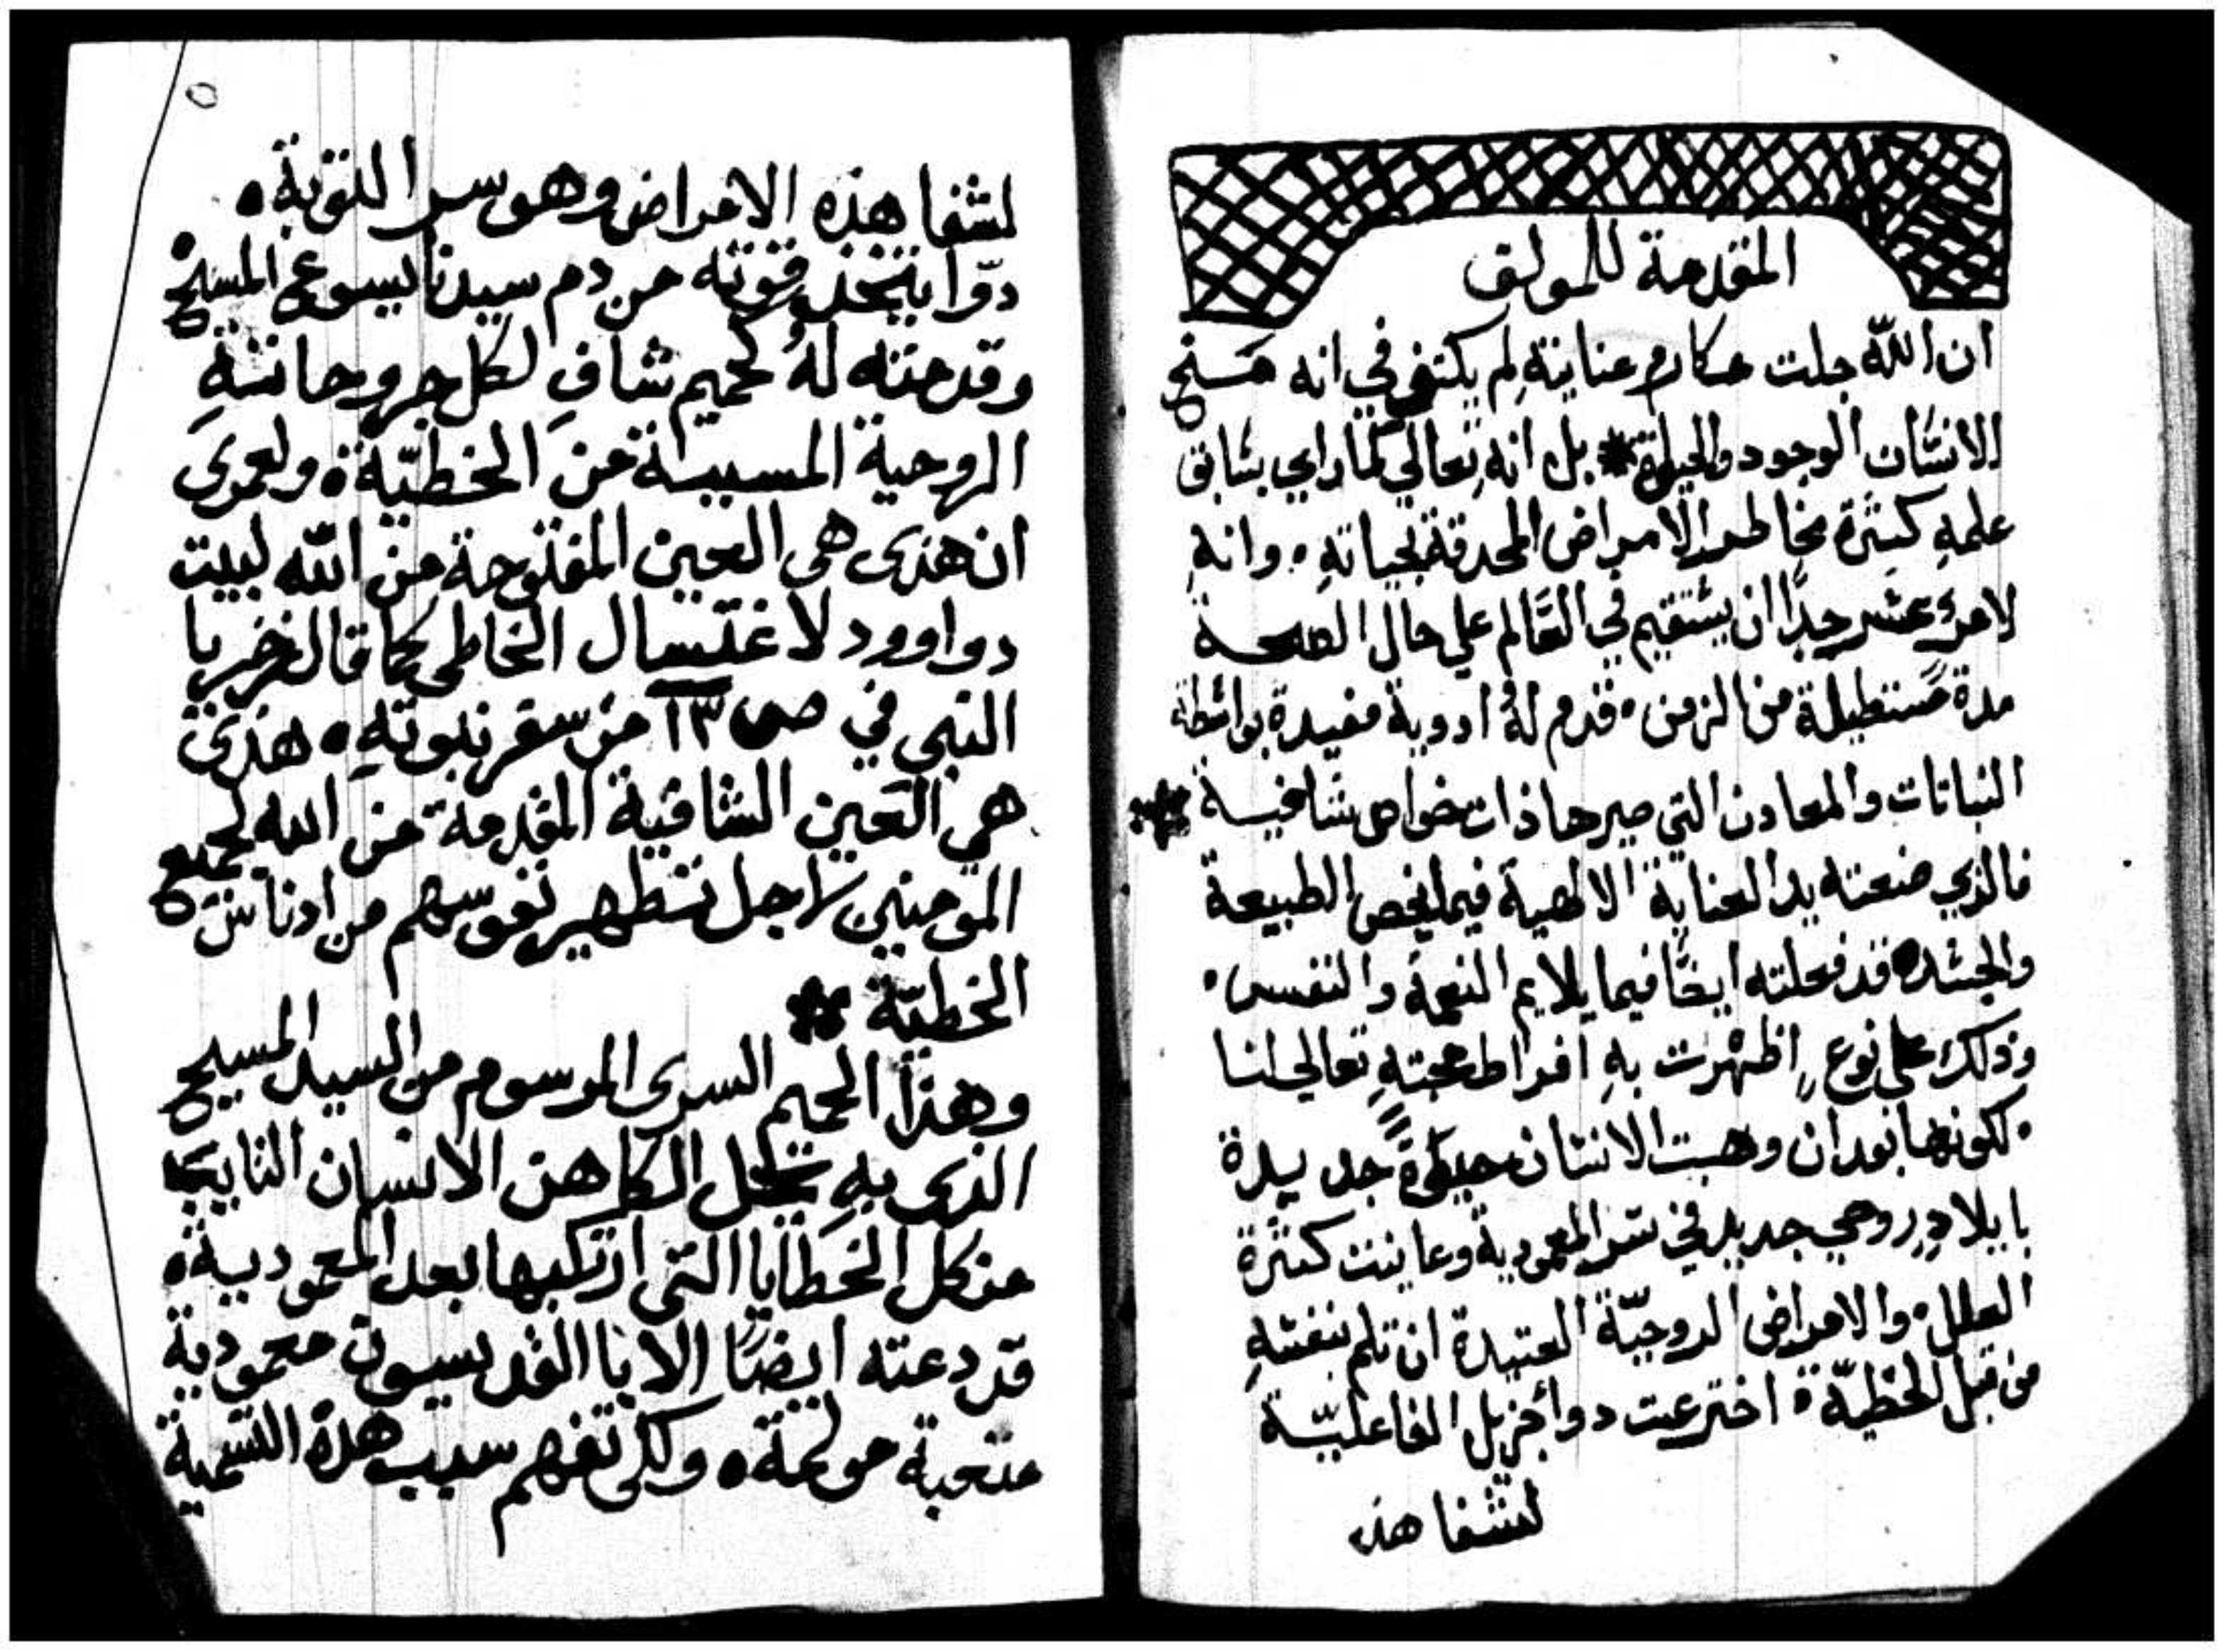 المقدمة للمولف
ان الله جلت مكارم عنايتة لم يكتفي في انه مسنح
الانسان الوجود والحياة * بل انه تعالي لما راي بسابق
علمهِ كثرة مخاطر الامراض المحدقة بحياتهِ . وانهِ
لامرٌ عسر جدًا ان يستقيم في العالم علي حال الصحة
مدة مستطيلة من الزمن . قدم لهُ ادوية مفيدة بواسطة
النباتات والمعادن التي صيرها ذات خواص شافية
فالذي صنعته يد العناية الالهية فيما يخص الطبيعة
والجسد . قد فعلته ايضًا فيما يلايم النعمة والنفس .
وذلك علي نوعٍ اظهرت بهِ افراط محبتهِ تعالي لنا
. لكونها بعد ان وهبت الانسان حيوةً جديدة
بايلادٍ روحي جديد في سر المعمودية وعاينت كثرة
العلل . والامراض الروحيّة العتيدة ان تلم بنفسهِ
من قبل الخطيّة . اخترعت دواً جزيل الفاعليّة
لشفا هذه
لشفا هذه الامراض وهو سر التوبة .
دوّا يتخذ قوته من دم سيدنا يسوع المسيح
وقدمته لهُ كحميم شافٍ لكل جروحاتهِ
الروحية المسببة من الخطيّة . ولعمرى
ان هذى هى العين المفتوحة من الله لبيت
دواوود لاغتسال الخاطى كما قال زخريا
النبى في ص ١٣ من سفر نبوتهِ . هذى
هي العين الشافية المقدمة من الله لجميع
المومنين لاجل تطهير نفوسهم من ادناس
الخطيّة *
وهذا الحميم السرى المرسوم من السيد المسيح
الذى بهِ يحل الكاهن الانسان التايب
من كل الخطايا التى ارتكبها بعد المعمودية .
قد دعته ايضًا الابا القديسون معمودية
متعبة مولمة . ولكى تفهم سبب هذه التسمية